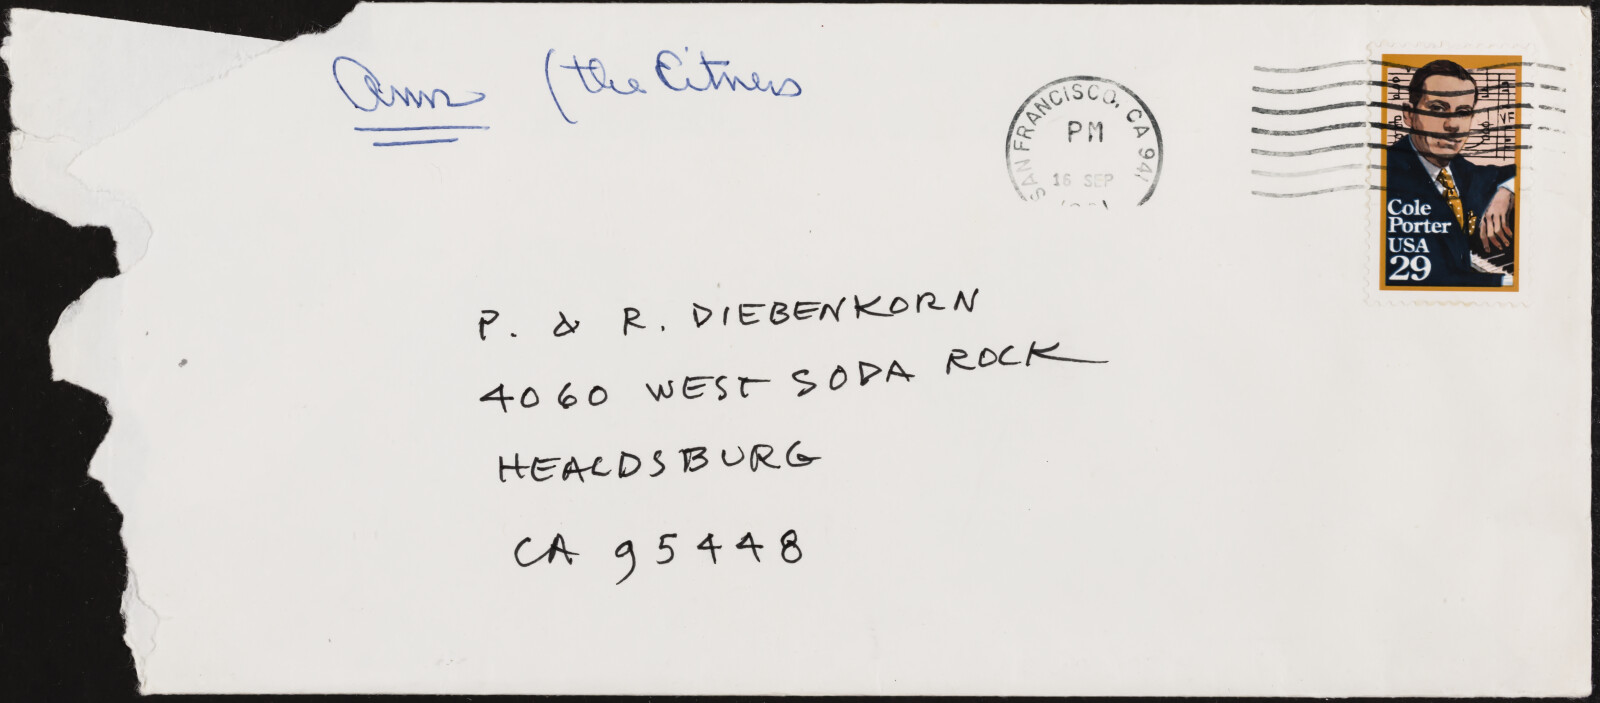 Ann (the Citners
SAN FRANCISCO, CA 941
PM
16 SEP
VF
Cole
Porter
USA
29
P. & R. DIEBENKORN
4060 WEST SODA ROCK
HEALDSBURG
CA 95448